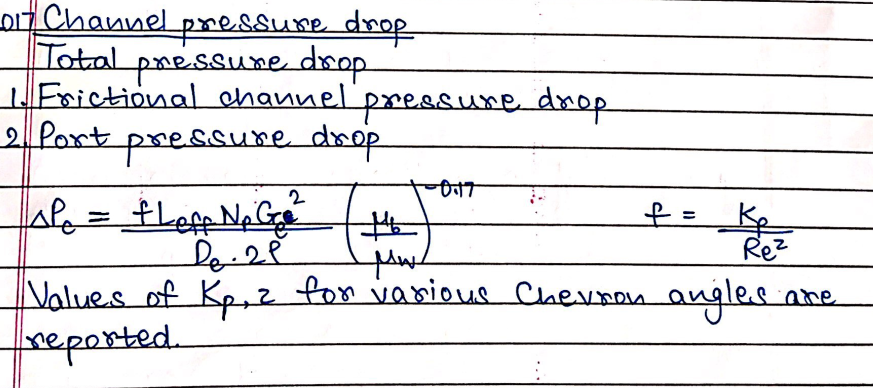 017 Channel pressure drop
Total pressure drop
1. Frictional channel pressure drop
2. Port pressure drop
ΔP_c = (f L_eff N_p G_c^2 / D_e · 2ρ) (μ_b / μ_w)^-0.17    f = K_p / Re^z
Values of K_p, z for various Chevron angles are
reported.